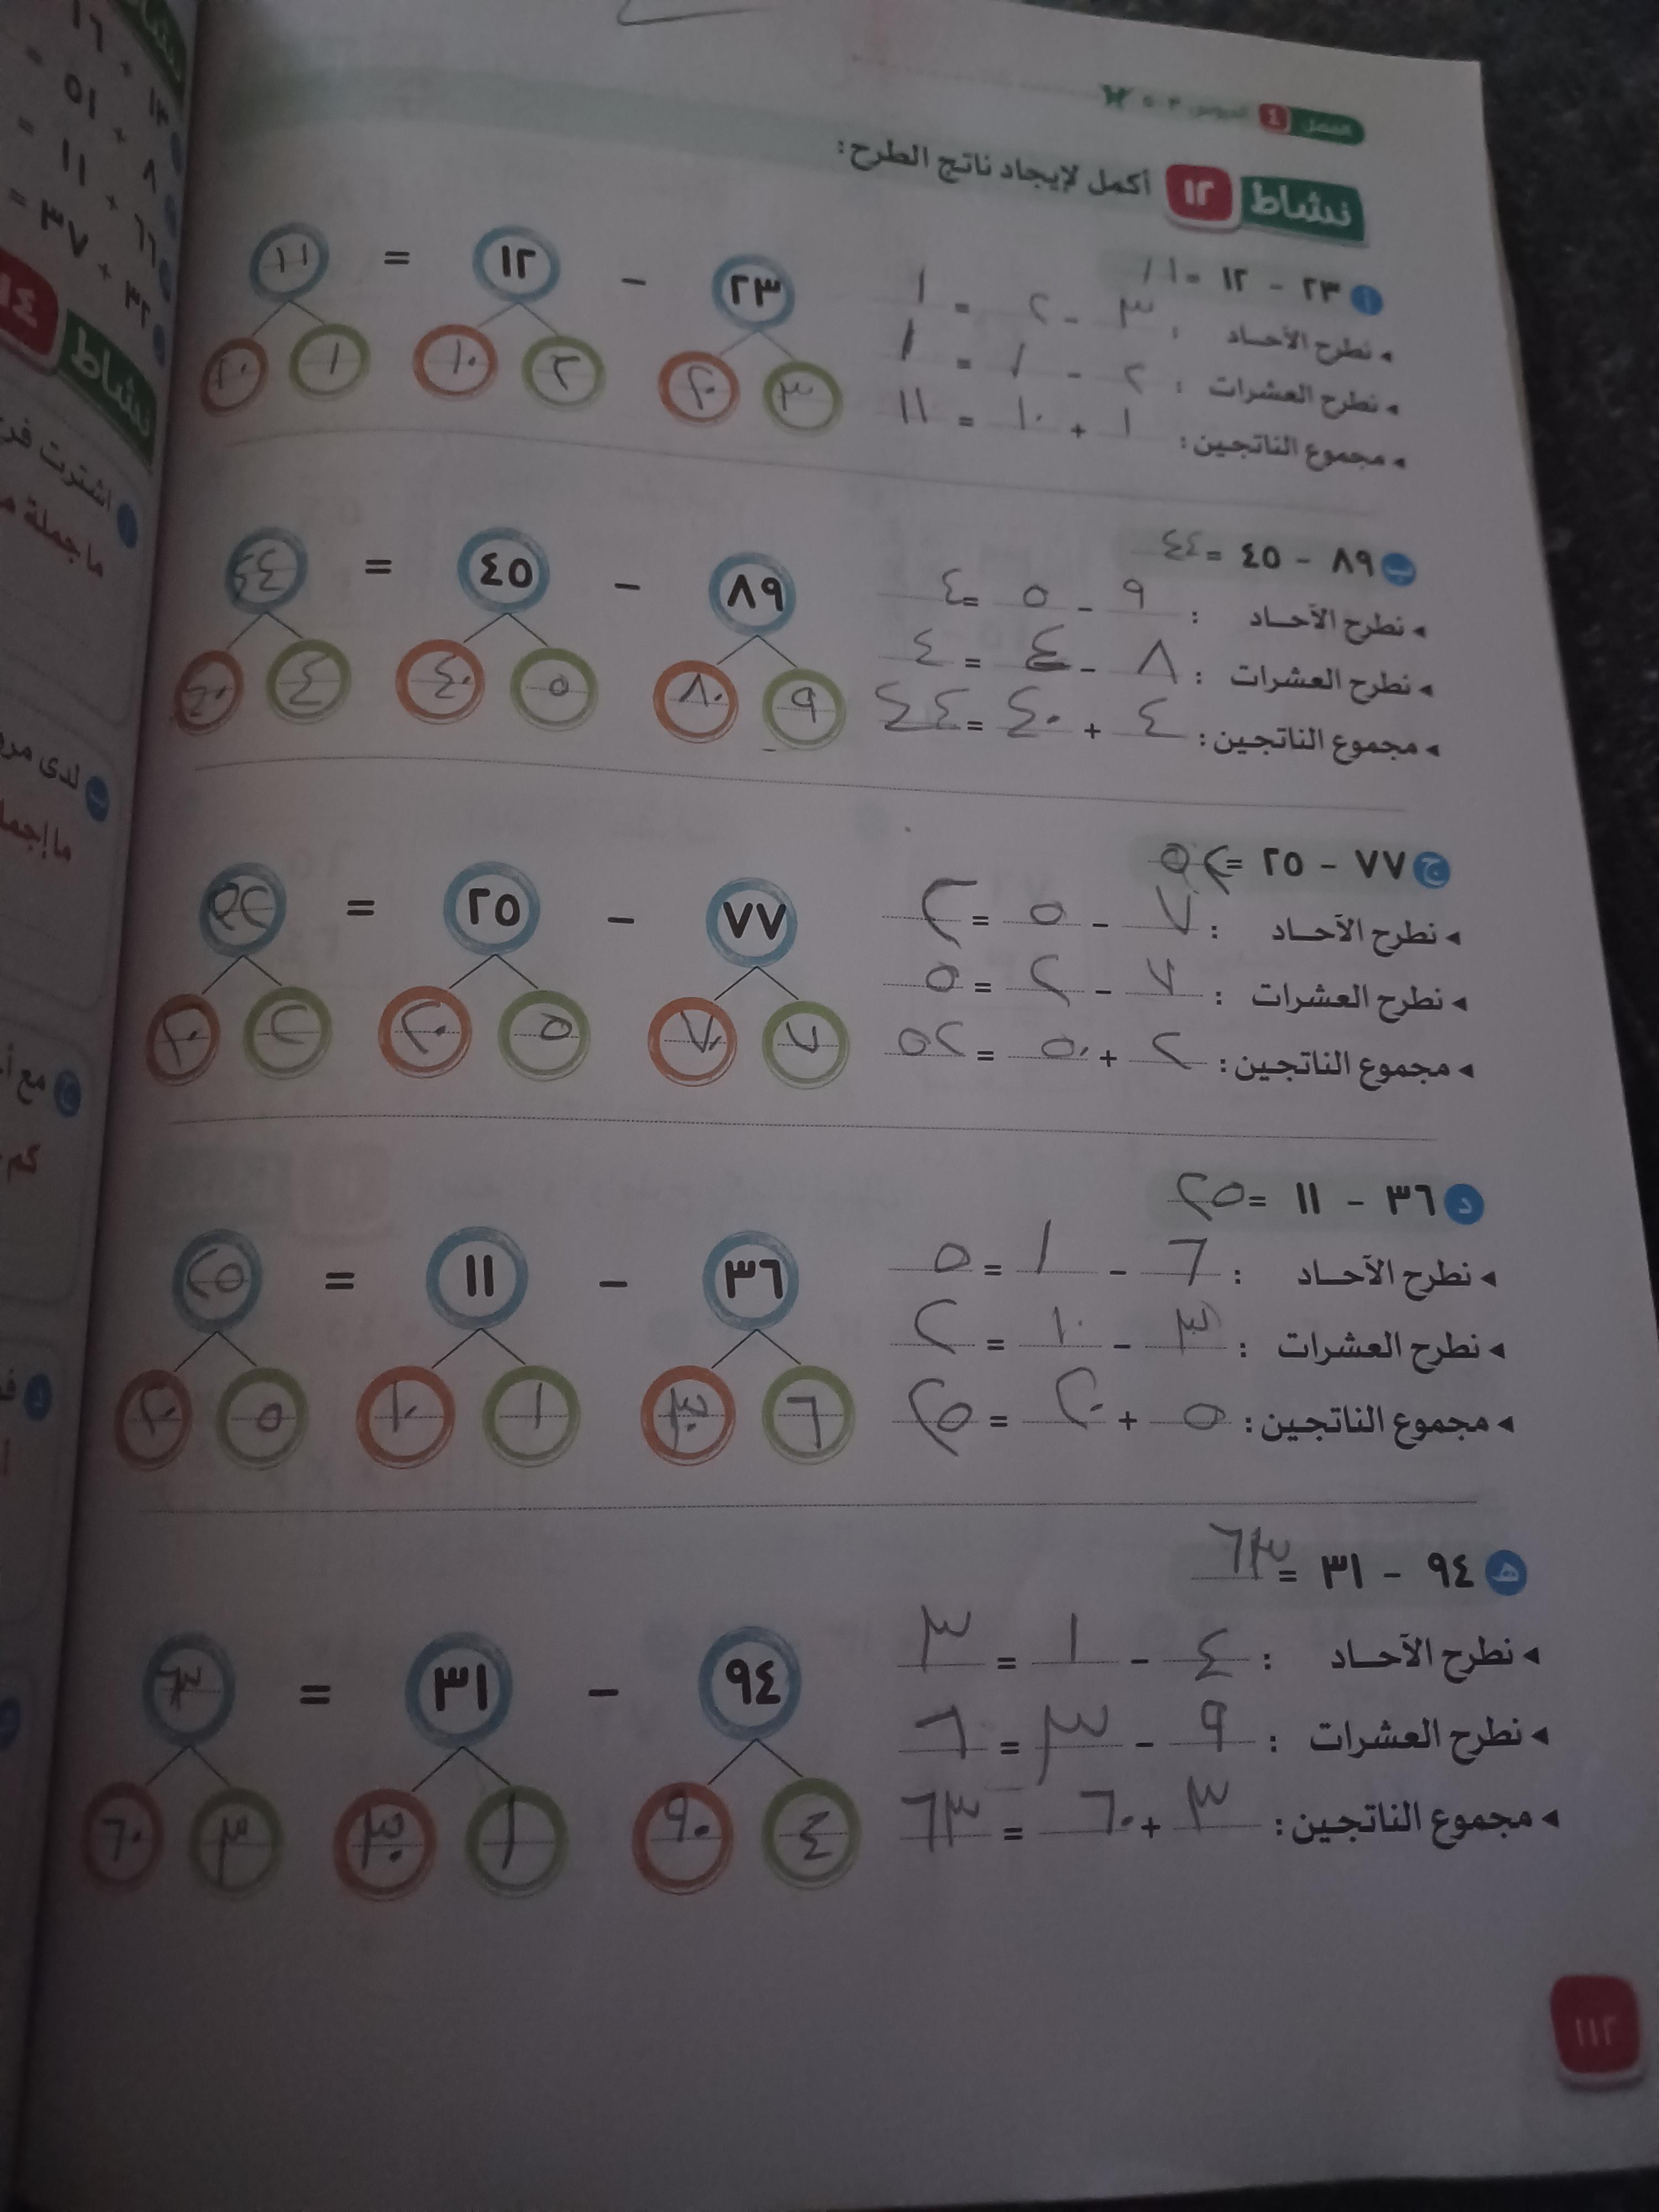 الفصل ٤ الدروس ٣-٥
نشاط ١٢ أكمل لإيجاد ناتج الطرح:
أ ٢٣ - ١٢ = ١١
◂ نطرح الآحـاد : ٣ - ٢ = ١
◂ نطرح العشرات : ٢ - ١ = ١
◂ مجموع الناتجين: ١ + ١٠ = ١١
٢٣ - ١٢ = ١١
٣ ٢٠ ٢ ١٠ ١ ١٠
ب ٨٩ - ٤٥ = ٤٤
◂ نطرح الآحـاد : ٩ - ٥ = ٤
◂ نطرح العشرات : ٨ - ٤ = ٤
◂ مجموع الناتجين: ٤ + ٤٠ = ٤٤
٨٩ - ٤٥ = ٤٤
٩ ٨٠ ٥ ٤٠ ٤ ٤٠
ج ٧٧ - ٢٥ = ٥٢
◂ نطرح الآحـاد : ٧ - ٥ = ٢
◂ نطرح العشرات : ٧ - ٢ = ٥
◂ مجموع الناتجين: ٢ + ٥٠ = ٥٢
٧٧ - ٢٥ =
٧ ٧٠ ٥ ٢٠ ٢
د ٣٦ - ١١ = ٢٥
◂ نطرح الآحـاد : ٦ - ١ = ٥
◂ نطرح العشرات : ٣ - ١٠ = ٢
◂ مجموع الناتجين: ٥ + ٢٠ = ٢٥
٣٦ - ١١ = ٢٥
٦ ٣٠ ١ ١٠ ٥ ٢٠
هـ ٩٤ - ٣١ = ٦٣
◂ نطرح الآحـاد : ٤ - ١ = ٣
◂ نطرح العشرات : ٩ - ٣ = ٦
◂ مجموع الناتجين: ٣ + ٦٠ = ٦٣
٩٤ - ٣١ = ٦٣
٤ ٩٠ ١ ٣٠ ٣ ٦٠
١١٢
١٣ + ١٦
٨ + ١٥ =
٦٦ + ١١ =
٣٢ + ٣٧ =
نشاط ١٤
اشترت
ما جملة
ب لدى
ج مع
كم